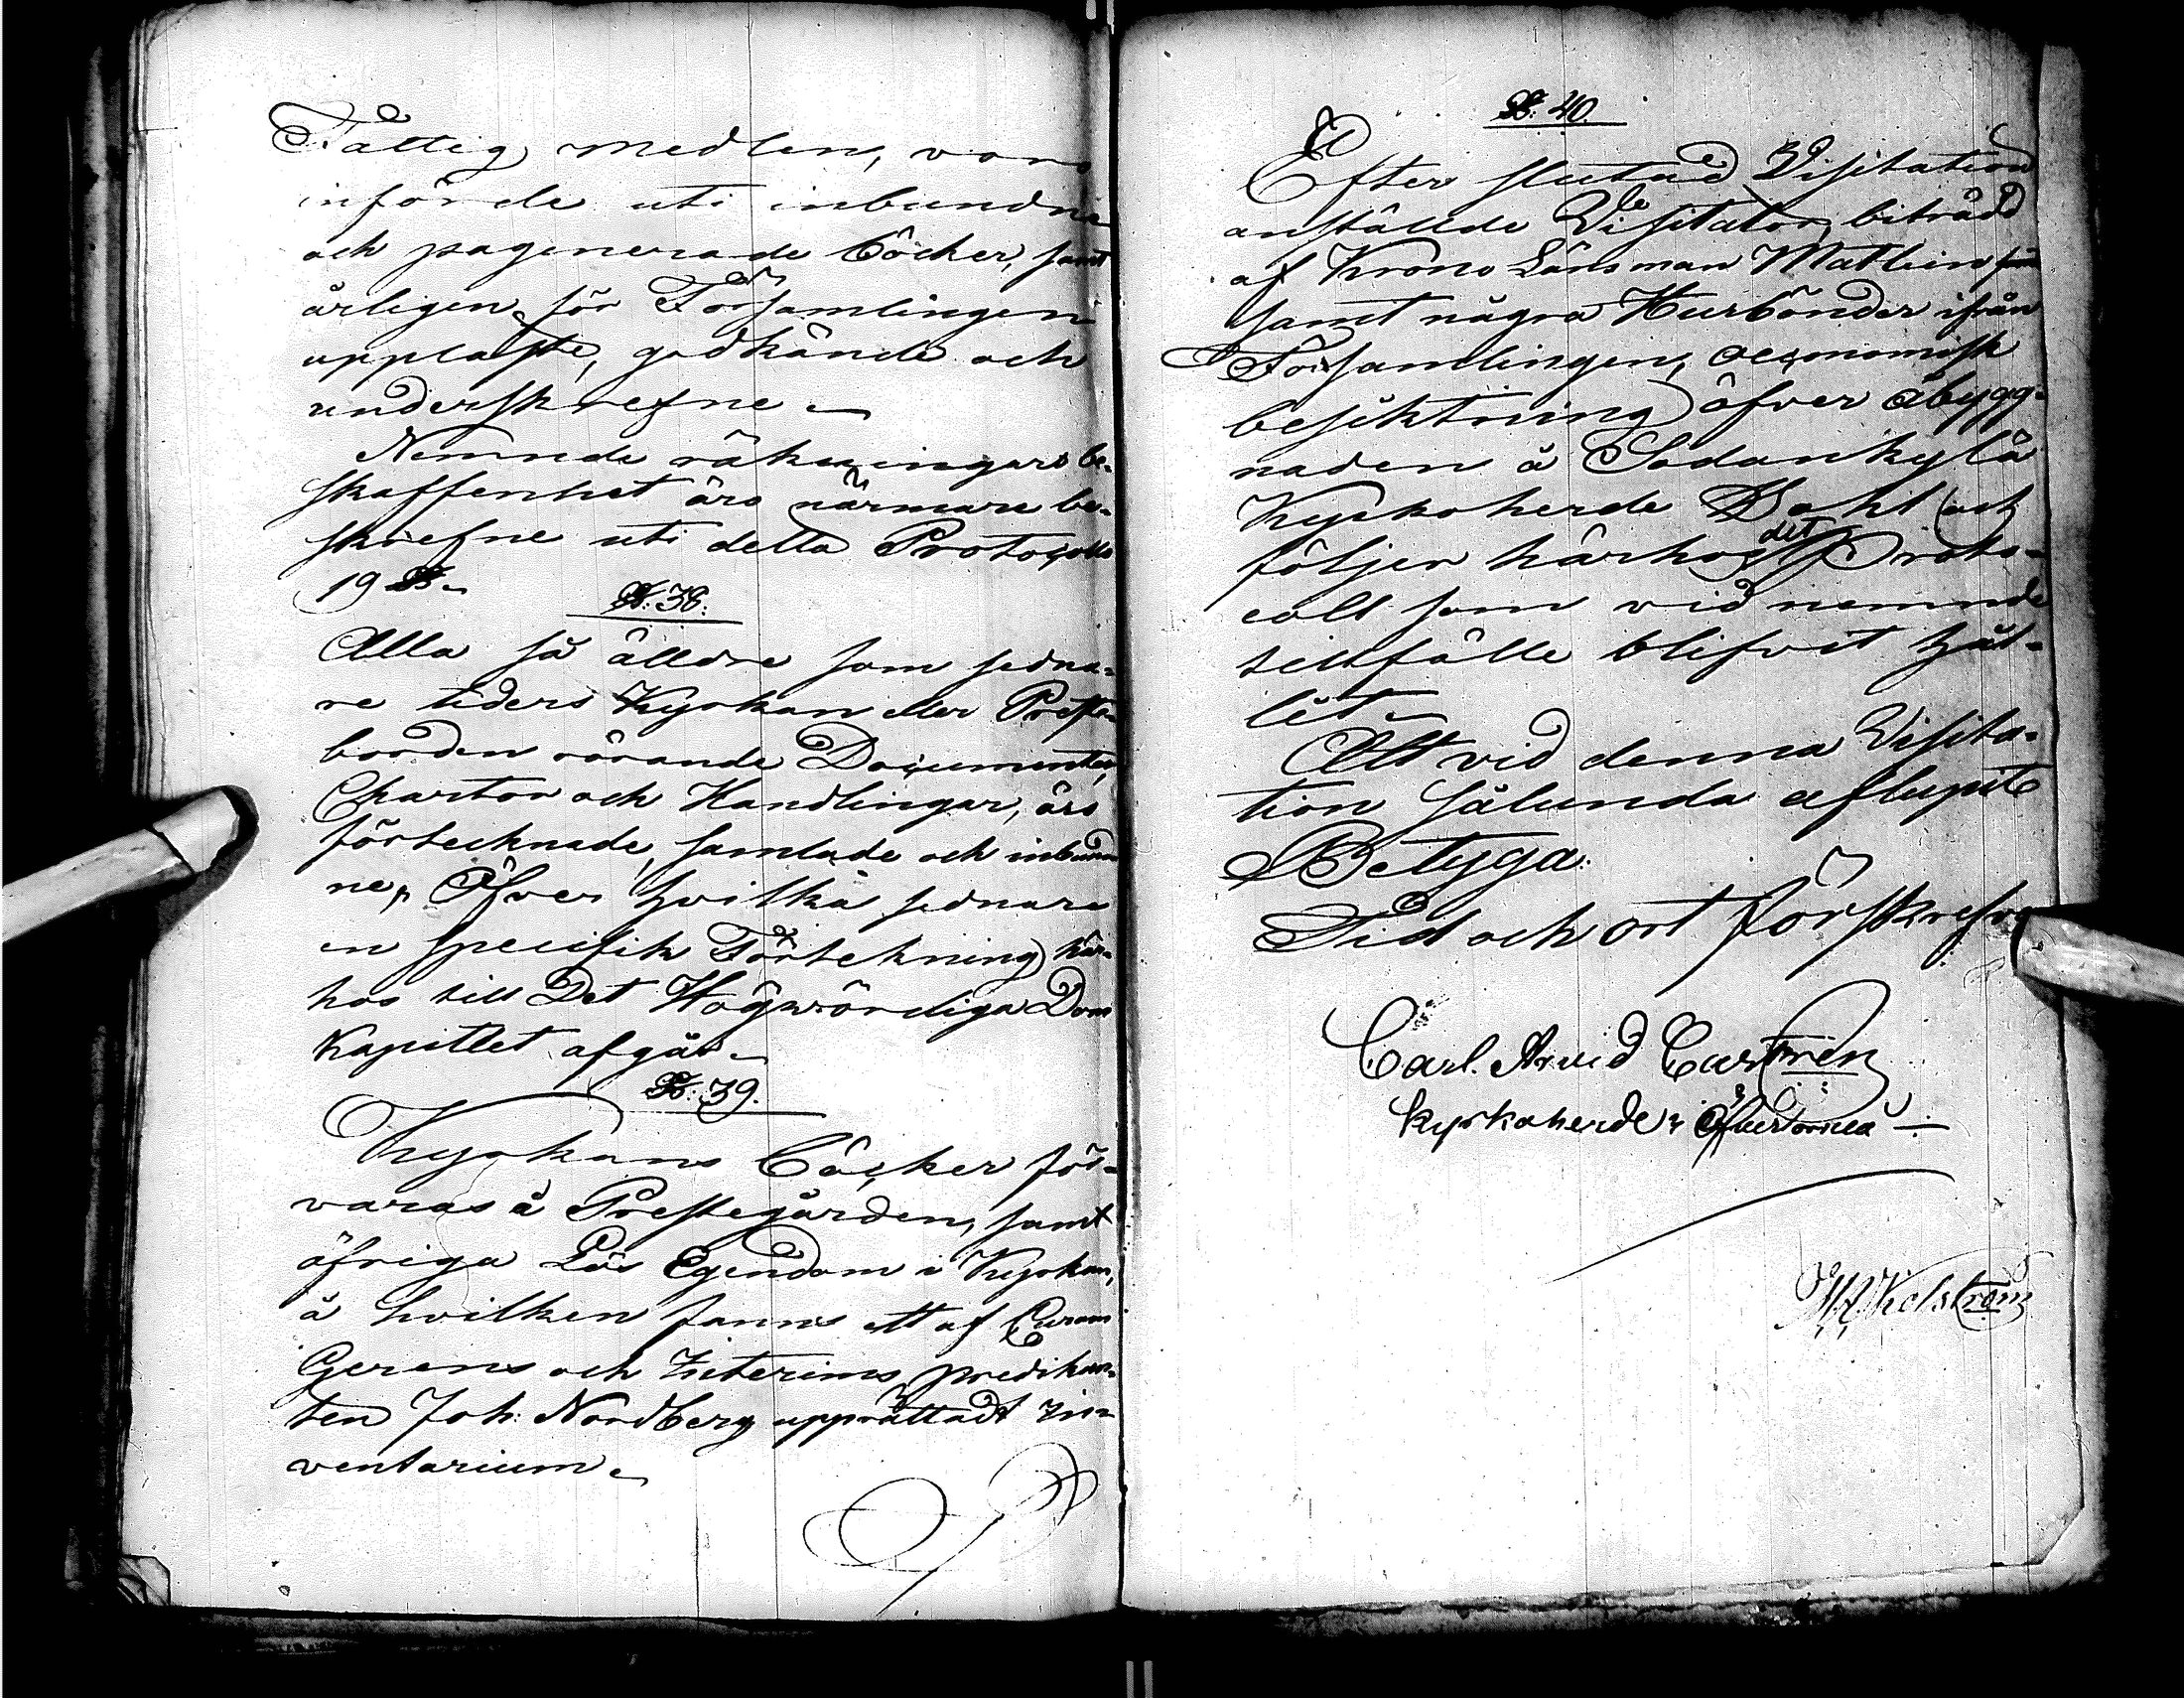 Fattig medlen, voro
införde uti inbundne
och paginerade böcker, samt
årligen för Församlingen
upplaste, godkände och
underskrefne.
Nemnde räkningars be-
skaffenhet äro närmare be-
skrefne uti detta Protocolls
19 §.
§. 38.
Alla så älldre som sedna-
re tiders Kyrkan eller Preste-
borden rörande Documenter,
Chartor och Handlingar, äro
förtecknade, samlade och inbund-
ne, Öfver hvilka sednare
en specifik Förtekning här-
hos till Det Högwördiga Dom
Kapitlet afgår.
§. 39.
Kyrkans böcker för-
varas å Prestegården, samt
öfriga Lös Egendom i Kyrkan,
å hvilken fanns ett af Curam
Gerens och Interims predikan-
ten Joh: Nordberg upprättadt In-
ventarium.
§. 40.
Efter slutad Visitation
anställde Visitator, biträdd
af Krono Länsman Mathlein
samt några Husbönder ifrån
Församlingen, oeconomisk
besiktning öfver åbygg-
naden å Sodankylä
Kyrkoherde Bohl och
följer härhos det Proto-
coll som vid nemnde
tillfälle blifvit hål-
let.
Allt vid denna Visita-
tion sålunda aflupit
Betyga:
Tid och ort förskrefne
Carl Arvid Castrén
kyrkoherde i Öfvertorneå